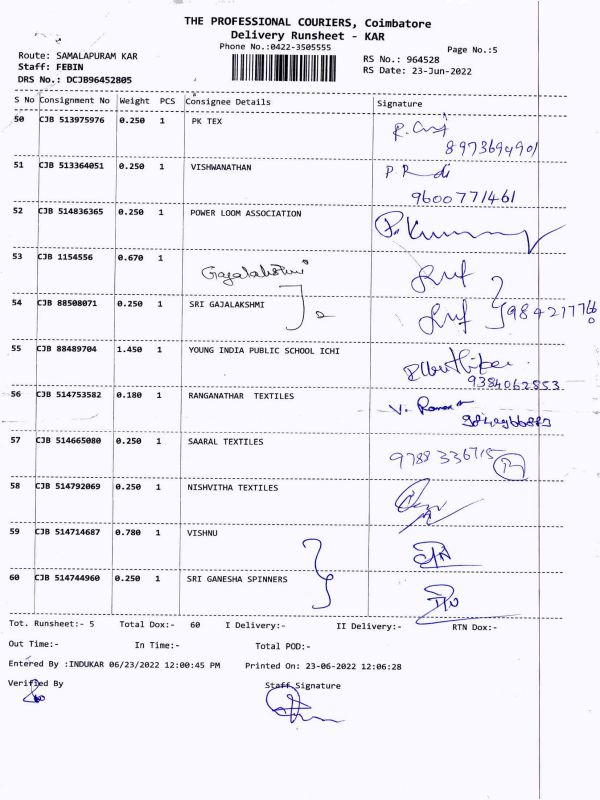 THE PROFESSIONAL COURIERS, Coimbatore
Delivery Runsheet - KAR
Phone No.:0422-3505555
Page No.:5
Route: SAMALAPURAM KAR
Staff: FEBIN
DRS No.: DCJB96452805
RS No.: 964528
RS Date: 23-Jun-2022
S No Consignment No Weight PCS Consignee Details Signature
50 CJB 513975976 0.250 1 PK TEX
8973694901
51 CJB 513364051 0.250 1 VISHWANATHAN
9600771461
52 CJB 514836365 0.250 1 POWER LOOM ASSOCIATION
53 CJB 1154556 0.670 1
Gajalakshmi
54 CJB 88508071 0.250 1 SRI GAJALAKSHMI
2
55 CJB 88489704 1.450 1 YOUNG INDIA PUBLIC SCHOOL ICHI
9384062853
56 CJB 514753582 0.180 1 RANGANATHAR TEXTILES
57 CJB 514665080 0.250 1 SAARAL TEXTILES
9788336715
58 CJB 514792069 0.250 1 NISHVITHA TEXTILES
59 CJB 514714687 0.780 1 VISHNU
60 CJB 514744960 0.250 1 SRI GANESHA SPINNERS
Tot. Runsheet:- 5 Total Dox:- 60 I Delivery:- II Delivery:- RTN Dox:-
Out Time:- In Time:- Total POD:-
Entered By :INDUKAR 06/23/2022 12:00:45 PM Printed On: 23-06-2022 12:06:28
Verified By Staff Signature